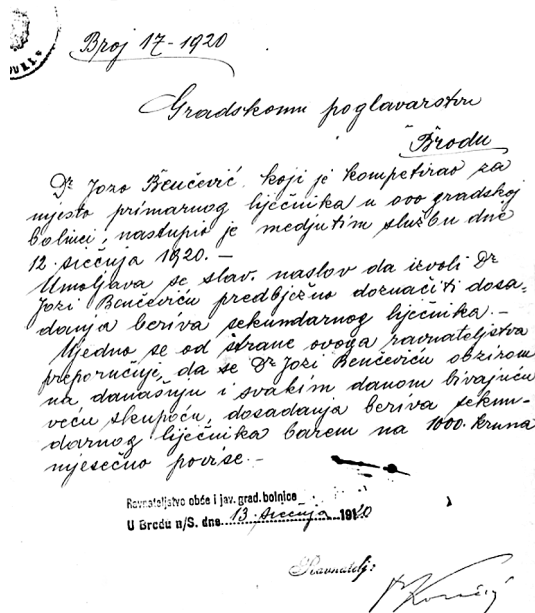 Broj 17-1920
Gradskomu poglavarstvu
Brodu
Dr Jozo Benčević, koji je kompetirao za
mjesto primarnog liječnika u ovo gradskoj
bolnici, nastupio je medjutim službu dne
12. siečnja 1920. –
Umoljava se slav. naslov da izvoli Dr
Jozi Benčeviću predbježno doznačiti dosa-
danja beriva sekundarnog liječnika. –
Ujedno se od strane ovoga ravnateljstva
preporučuje, da se Dr Jozi Benčeviću obzirom
na današnju i svakim danom bivajuću
veću skupoću, dosadanja beriva sekun-
darnog liječnika barem na 1000. kruna
mjesečno povise. –
Ravnateljstvo obće i jav. grad. bolnice
U Brodu n/S. dne 13. siečnja 1920
Ravnatelj: